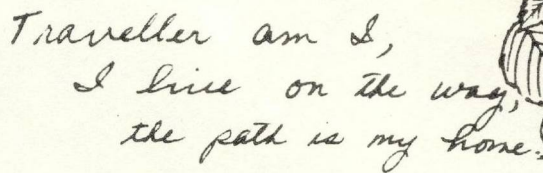 Traveller am I,
I live on the way,
the path is my home.